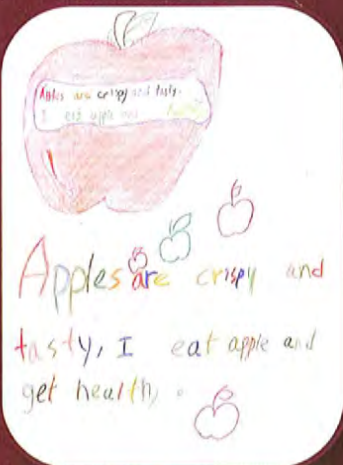 Apples are crispy and tasty.
I eat apple and
Apples are crispy and
tasty, I eat apple and
get health,